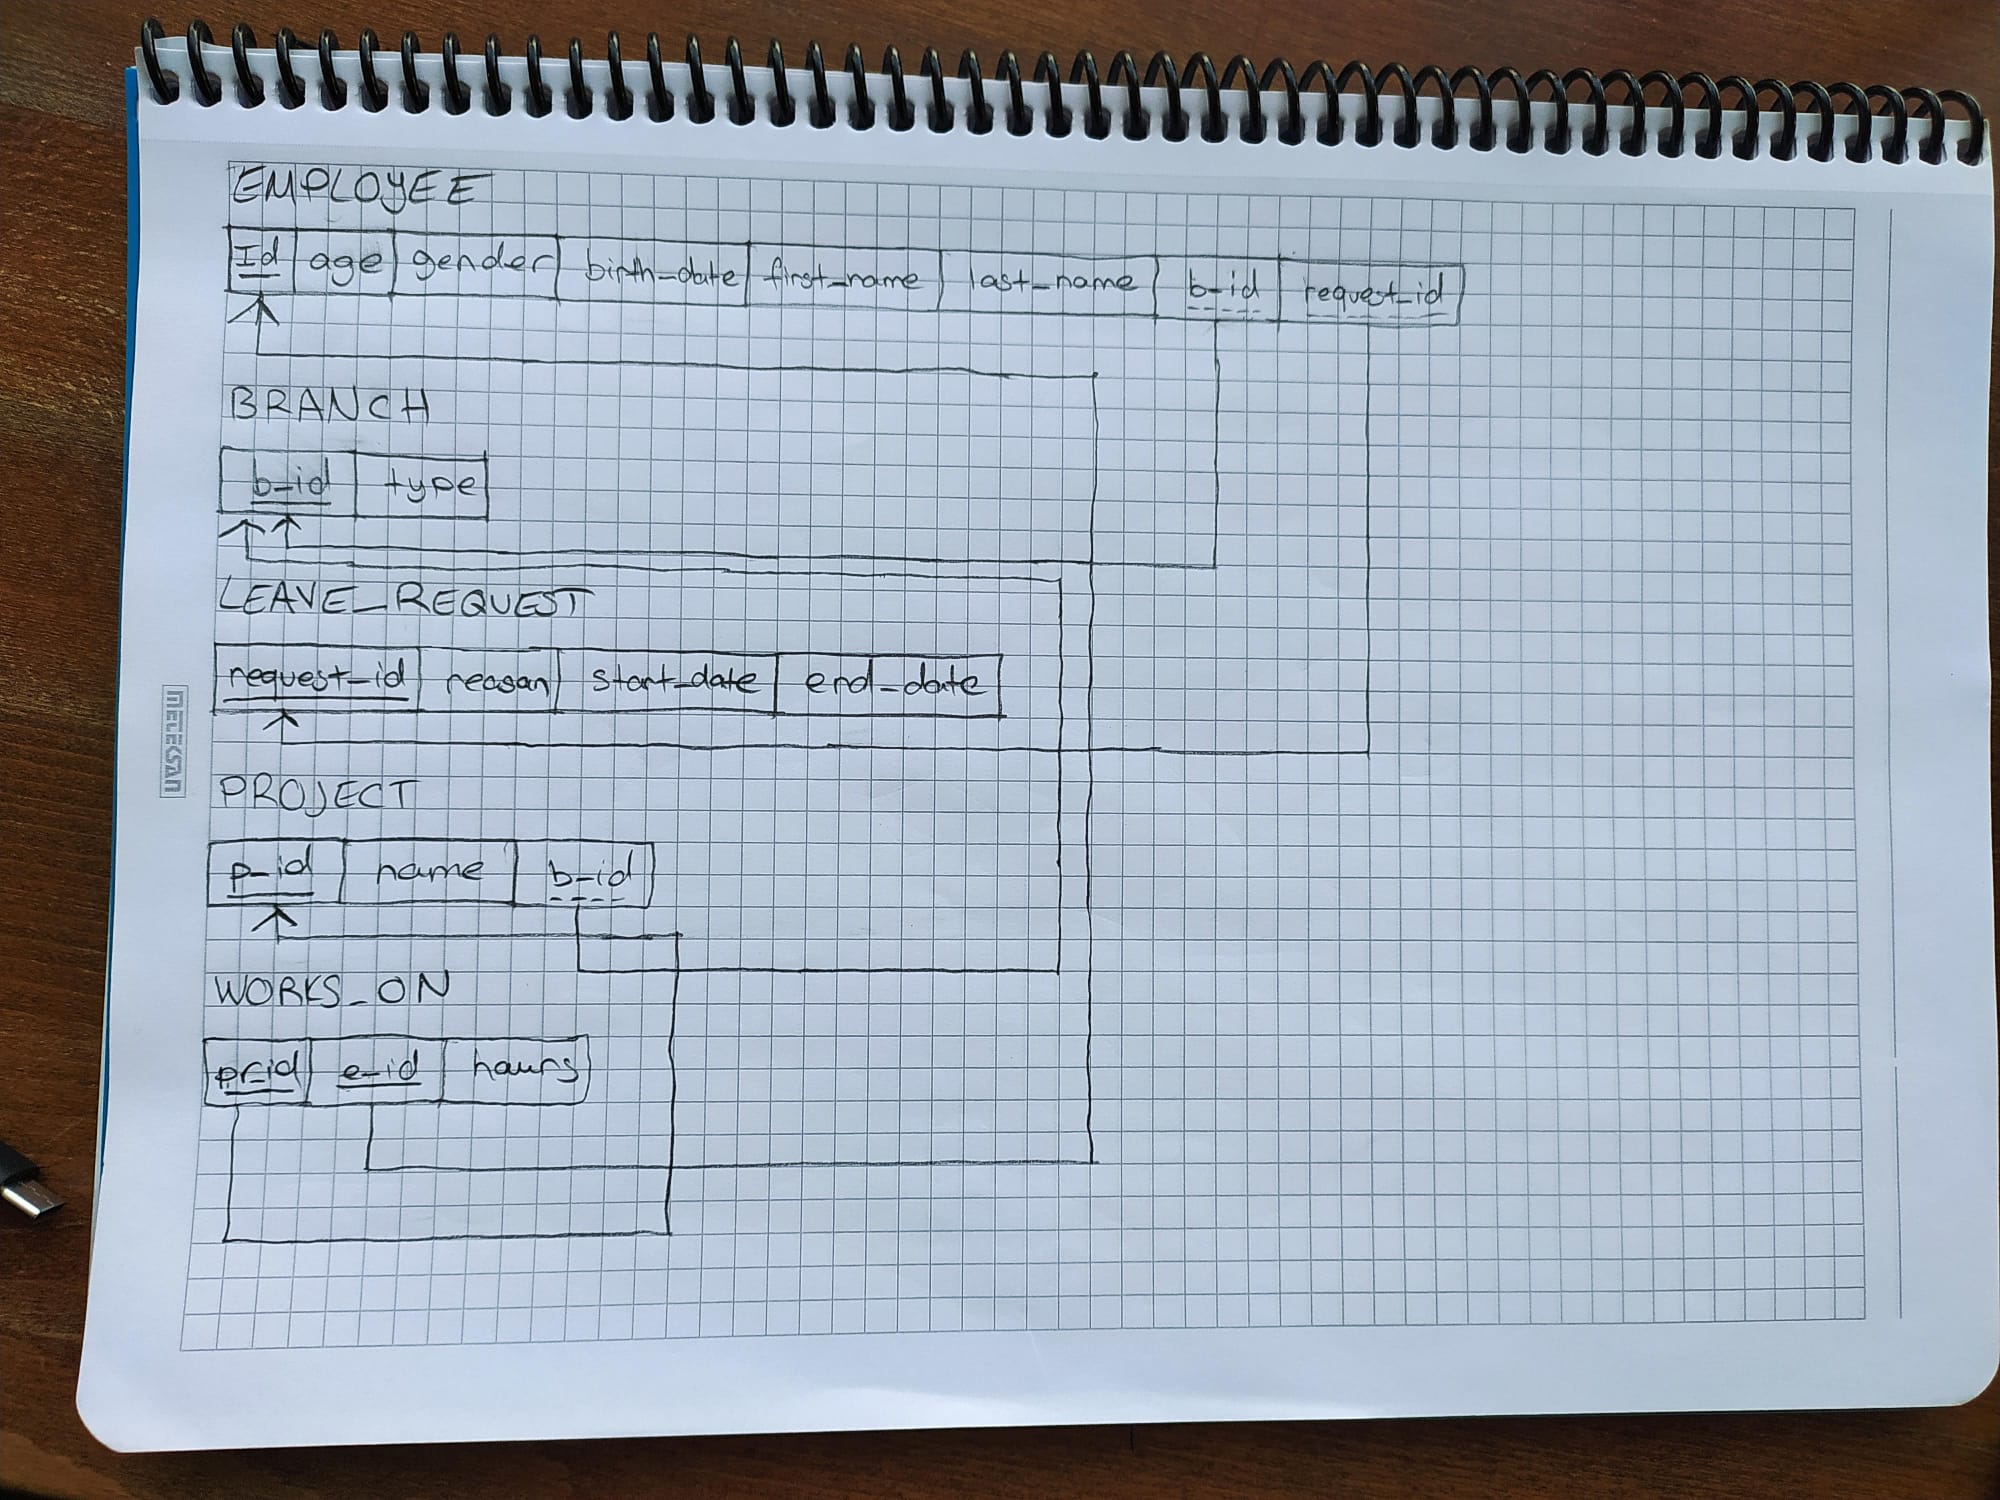 EMPLOYEE
Id age gender birth_date first_name last_name b_id request_id
BRANCH
b_id type
LEAVE_REQUEST
request_id reason start_date end_date
METEKSAN
PROJECT
p_id name b_id
WORKS_ON
pr_id e_id hours